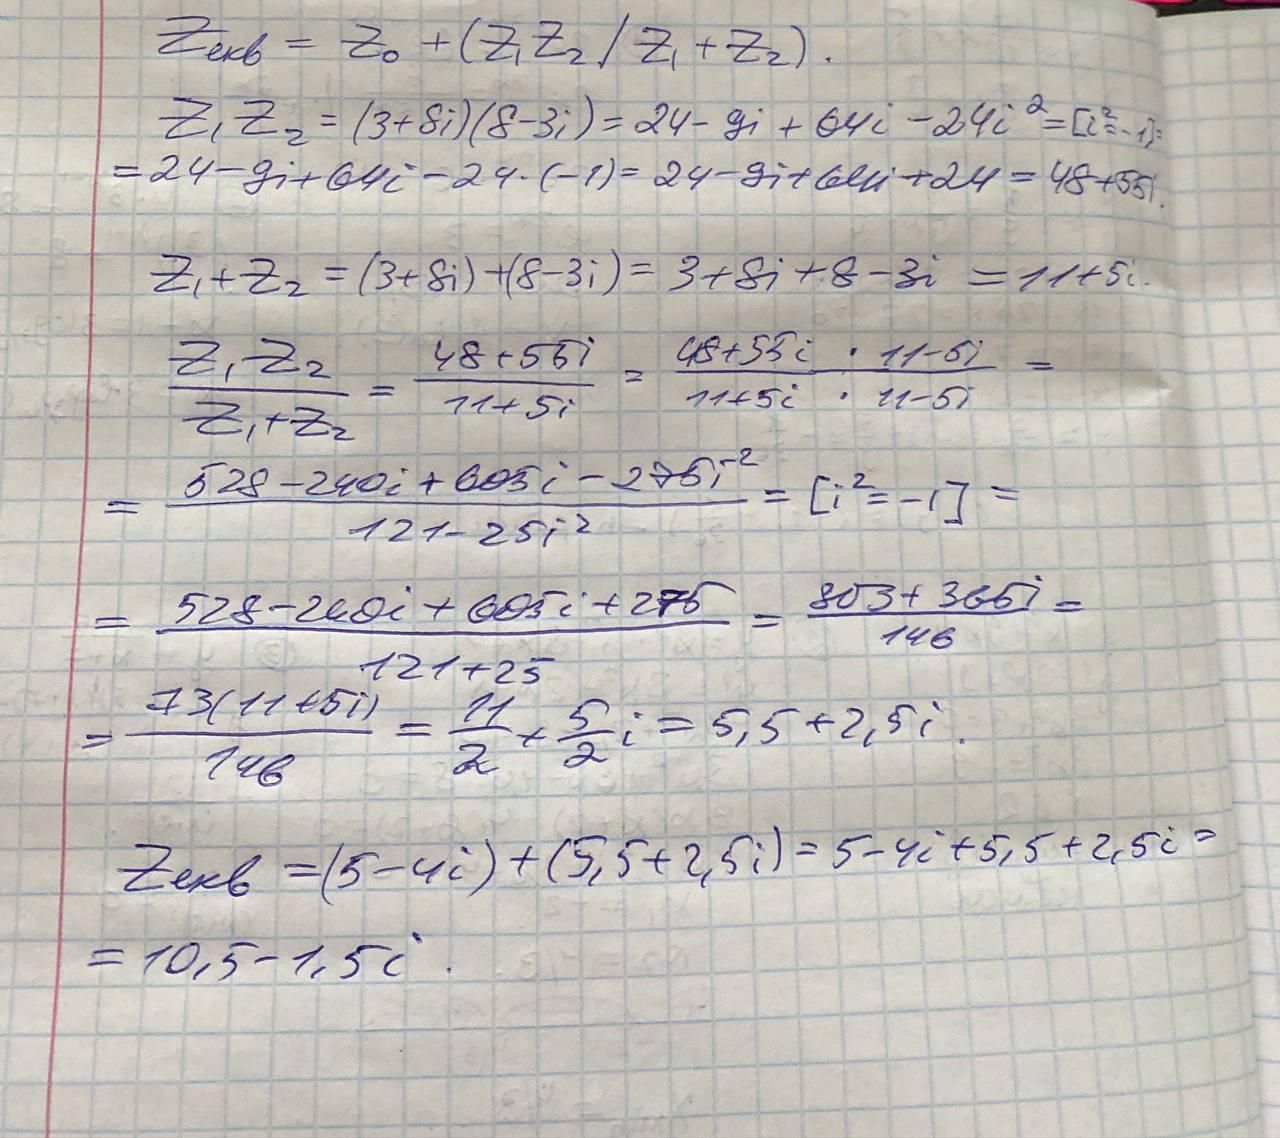 Zекв = Z₀ + (Z₁Z₂ / Z₁ + Z₂).
Z₁Z₂ = (3+8i)(8-3i) = 24 - 9i + 64i - 24i² = [i²=-1] =
= 24 - 9i + 64i - 24·(-1) = 24 - 9i + 64i + 24 = 48 + 55i.
Z₁ + Z₂ = (3+8i) + (8-3i) = 3 + 8i + 8 - 3i = 11 + 5i.
Z₁Z₂ / Z₁+Z₂ = 48+55i / 11+5i = 48+55i · 11-5i / 11+5i · 11-5i =
= 528 - 240i + 605i - 275i² / 121 - 25i² = [i² = -1] =
= 528 - 240i + 605i + 275 / 121 + 25 = 803 + 365i / 146 =
= 73(11+5i) / 146 = 11/2 + 5/2 i = 5,5 + 2,5i.
Zекв = (5-4i) + (5,5+2,5i) = 5 - 4i + 5,5 + 2,5i =
= 10,5 - 1,5i.